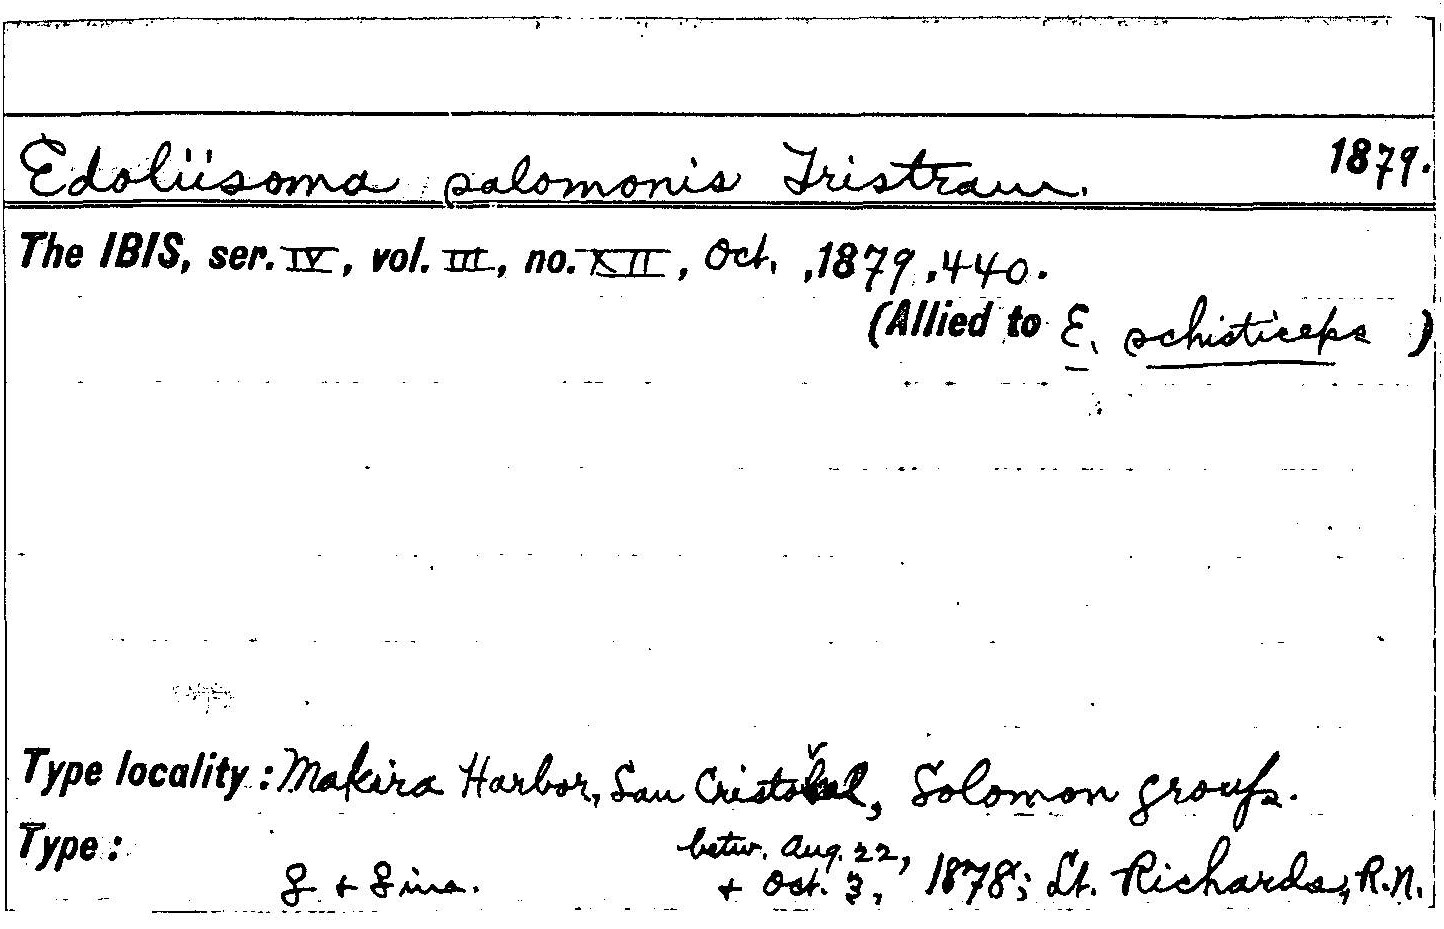 Edoliisoma salomonis Tristram. 1879.
The IBIS, ser. IV, vol. III, no. XII, Oct., 1879, 440.
(Allied to E. schisticeps)
Type locality: Makira Harbor, San Cristoval, Solomon group.
Type:
betw. Aug. 22,
+ im. + Oct. 3, 1878; Lt. Richards, R.N.